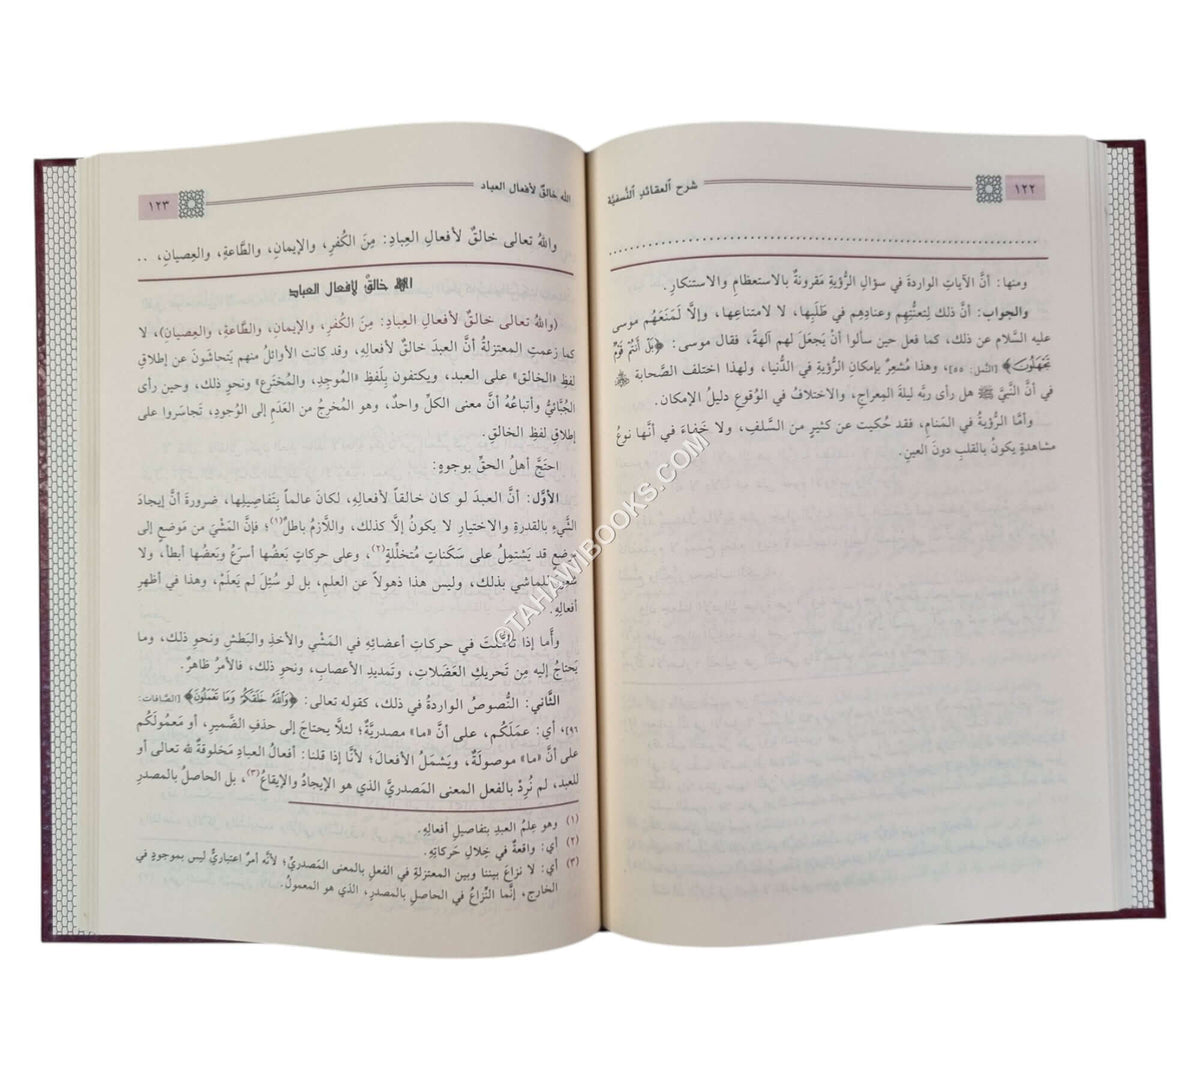 ١٢٢
شرح العقائدِ النَّسفيَّة
ومنها: أنَّ الآياتِ الواردةَ في سؤالِ الرُّؤيةِ مَقرونةٌ بالاستعظامِ والاستنكارِ.
والجواب: أنَّ ذلك لِتعنُّتِهم وعنادِهم في طَلَبِها، لا لامتناعِها، وإلَّا لَمَنَعَهُم موسى
عليه السَّلام عن ذلك، كما فعل حين سألوا أنْ يَجعَلَ لهم آلهةً، فقال موسى: ﴿بَلْ أَنتُمْ قَوْمٌ
تَجْهَلُونَ﴾ [النَّمل: ٥٥]، وهذا مُشعِرٌ بإمكانِ الرُّؤيةِ في الدُّنيا، ولهذا اختلف الصَّحابة
في أنَّ النَّبيَّ ﷺ هل رأى ربَّه ليلةَ المِعراجِ، والاختلافُ في الوُقوعِ دليلُ الإمكان.
وأمَّا الرُّؤيةُ في المَنامِ، فقد حُكيت عن كثيرٍ من السَّلفِ، ولا خَفاءَ في أنَّها نوعُ
مشاهدةٍ يكونُ بالقلبِ دونَ العينِ.
الله خالقٌ لأفعال العباد
١٢٣
واللهُ تعالى خالقٌ لأفعالِ العِبادِ: مِنَ الكُفرِ، والإيمانِ، والطَّاعةِ، والعِصيانِ، ..
الله خالقٌ لأفعال العباد
(واللهُ تعالى خالقٌ لأفعالِ العِبادِ: مِنَ الكُفرِ، والإيمانِ، والطَّاعةِ، والعِصيانِ)، لا
كما زعمتِ المعتزلةُ أنَّ العبدَ خالقٌ لأفعالِهِ، وقد كانت الأوائلُ منهم يَتحاشَونَ عن إطلاقِ
لفظِ «الخالق» على العبد، ويكتفون بِلَفظِ «المُوجِدِ، والمُختَرِع» ونحوِ ذلك، وحين رأى
الجُبَّائيُّ وأتباعُهُ أنَّ معنى الكلِّ واحدٌ، وهو المُخرِج من العَدَمِ إلى الوُجودِ، تَجاسَروا على
إطلاقِ لفظِ الخالقِ.
احتَجَّ أهلُ الحقِّ بوجوهٍ:
الأوَّل: أنَّ العبدَ لو كان خالقاً لأفعالِهِ، لكانَ عالماً بِتَفاصيلِها، ضرورةَ أنَّ إيجادَ
الشَّيءِ بالقدرةِ والاختيارِ لا يكونُ إلَّا كذلك، واللَّازمُ باطلٌ(١)؛ فإنَّ المَشْيَ من مَوضعٍ إلى
موضعٍ قد يَشتمِلُ على سَكَناتٍ مُتخلِّلةٍ(٢)، وعلى حركاتٍ بَعضُها أسرَعُ وبَعضُها أبطأ، ولا
شعورَ للماشي بذلك، وليس هذا ذُهولاً عن العلمِ، بل لو سُئِلَ لم يَعلَمْ، وهذا في أظهرِ
أفعالِهِ.
وأَما إذا تأمَّلتَ في حركاتِ أعضائِهِ في المَشْيِ والأخذِ والبَطشِ ونحوِ ذلك، وما
يَحتاجُ إليه مِن تَحريكِ العَضَلاتِ، وتَمديدِ الأعصابِ، ونحوِ ذلك، فالأمرُ ظاهرٌ.
الثَّاني: النُّصوصُ الواردةُ في ذلك، كقوله تعالى: ﴿وَاللَّهُ خَلَقَكُمْ وَمَا تَعْمَلُونَ﴾ [الصَّافات:
٩٦]، أي: عمَلَكُم، على أنَّ «ما» مصدريَّةٌ؛ لئلَّا يحتاجَ إلى حذفِ الضَّميرِ، أو مَعمُولَكُم
على أنَّ «ما» موصولَةٌ، ويَشمَلُ الأفعالَ؛ لأنَّا إذا قلنا: أفعالُ العبادِ مَخلوقةٌ لله تعالى أو
للعبدِ، لم نُرِدْ بالفعلِ المعنى المَصدَريَّ الذي هو الإيجادُ والإيقاعُ(٣)، بل الحاصلُ بالمصدرِ
(١) وهو عِلمُ العبدِ بتفاصيلِ أفعالِهِ.
(٢) أي: واقعةٌ في خِلالِ حَركاتِهِ.
(٣) أي: لا نزاعَ بيننا وبين المعتزلةِ في الفعلِ بالمعنى المَصدَريِّ؛ لأنَّه أمرٌ اعتباريٌّ ليس بموجودٍ في
الخارج، إنَّما النِّزاعُ في الحاصلِ بالمصدرِ، الذي هو المعمولُ.
©TAHAWIBOOKS.COM